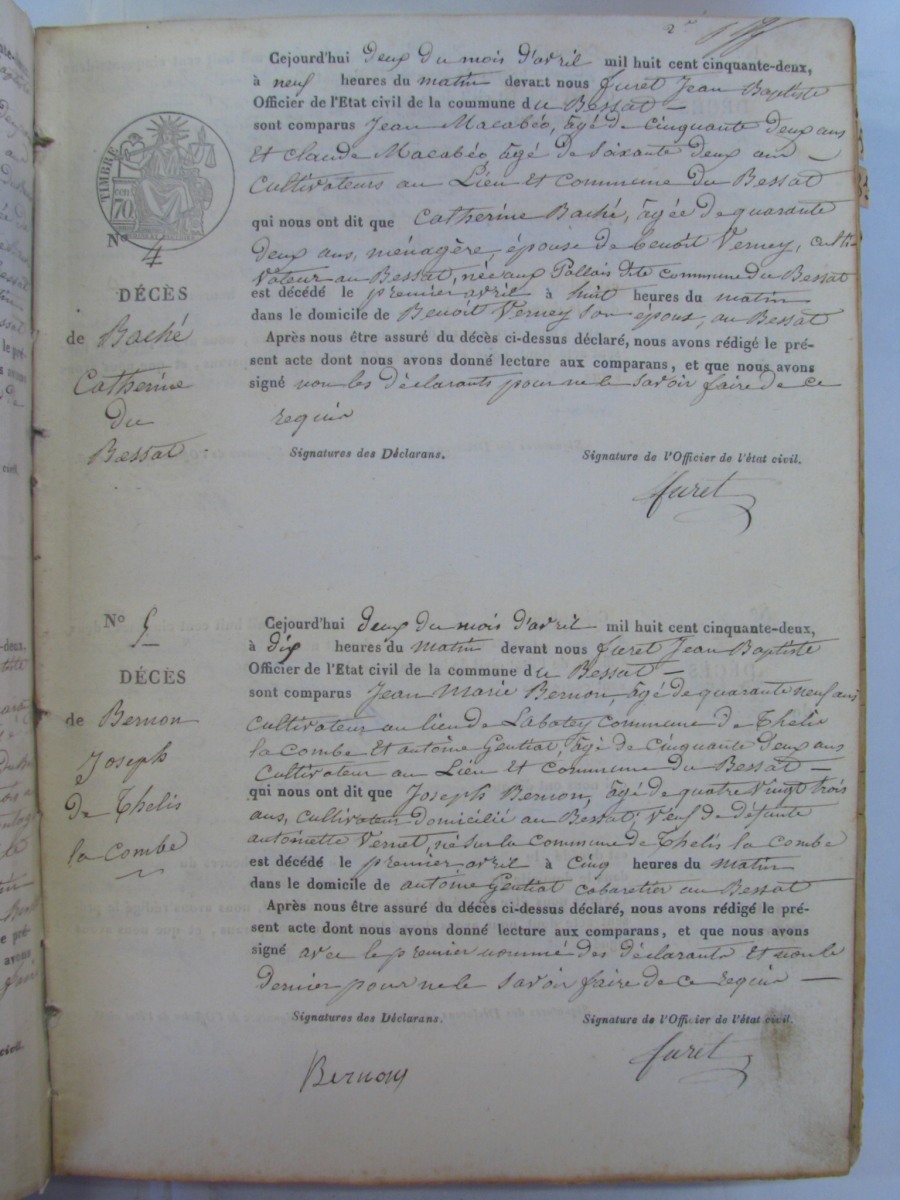 2e
Cejourd'hui deux du mois d'avril mil huit cent cinquante-deux,
à neuf heures du matin devant nous furet Jean Baptiste
Officier de l'Etat civil de la commune du Bessat —
sont comparus Jean Macabéo, âgé de cinquante deux ans
Et claude Macabéo, âgé de soixante deux ans —
Cultivateurs au Lieu Et commune du Bessat
qui nous ont dit que Catherine Baché, âgée de quarante
deux ans, ménagère, épouse de benoît Verney, culti-
vateur au Bessat, née aux Pallais dite commune du Bessat
est décédé le premier avril à huit heures du matin
dans le domicile de Benoît Verney son époux, au Bessat
Après nous être assuré du décès ci-dessus déclaré, nous avons rédigé le pré-
sent acte dont nous avons donné lecture aux comparans, et que nous avons
signé non les déclarants pour ne le savoir faire de ce
requis
Signatures des Déclarans. Signature de l'Officier de l'état civil.
furet
TIMBRE
70
No 4
DÉCÈS
de Baché
Catherine
du
Bessat
No 5
DÉCÈS
de Bernon
Joseph
De Thelis
la combe
Cejourd'hui deux du mois d'avril mil huit cent cinquante-deux,
à dix heures du matin devant nous furet Jean Baptiste
Officier de l'Etat civil de la commune du Bessat —
sont comparus Jean Marie Bernon, âgé de quarante neuf ans
cultivateur au lieu de Labatey commune de Thelis
la combe Et antoine Gentiat, âgé de cinquante deux ans
Cultivateur au Lieu Et commune du Bessat —
qui nous ont dit que Joseph Bernon, âgé de quatre vingt trois
ans, cultivateur domicilié au Bessat, veuf de défunte
antoinette Vernet, né sur la commune de Thelis la combe
est décédé le premier avril à cinq heures du matin
dans le domicile de antoine Gentiat cabaretier au Bessat
Après nous être assuré du décès ci-dessus déclaré, nous avons rédigé le pré-
sent acte dont nous avons donné lecture aux comparans, et que nous avons
signé avec le premier nommé des déclarants Et non le
dernier pour ne le savoir faire de ce requis —
Signatures des Déclarans. Signature de l'Officier de l'état civil.
Bernon furet